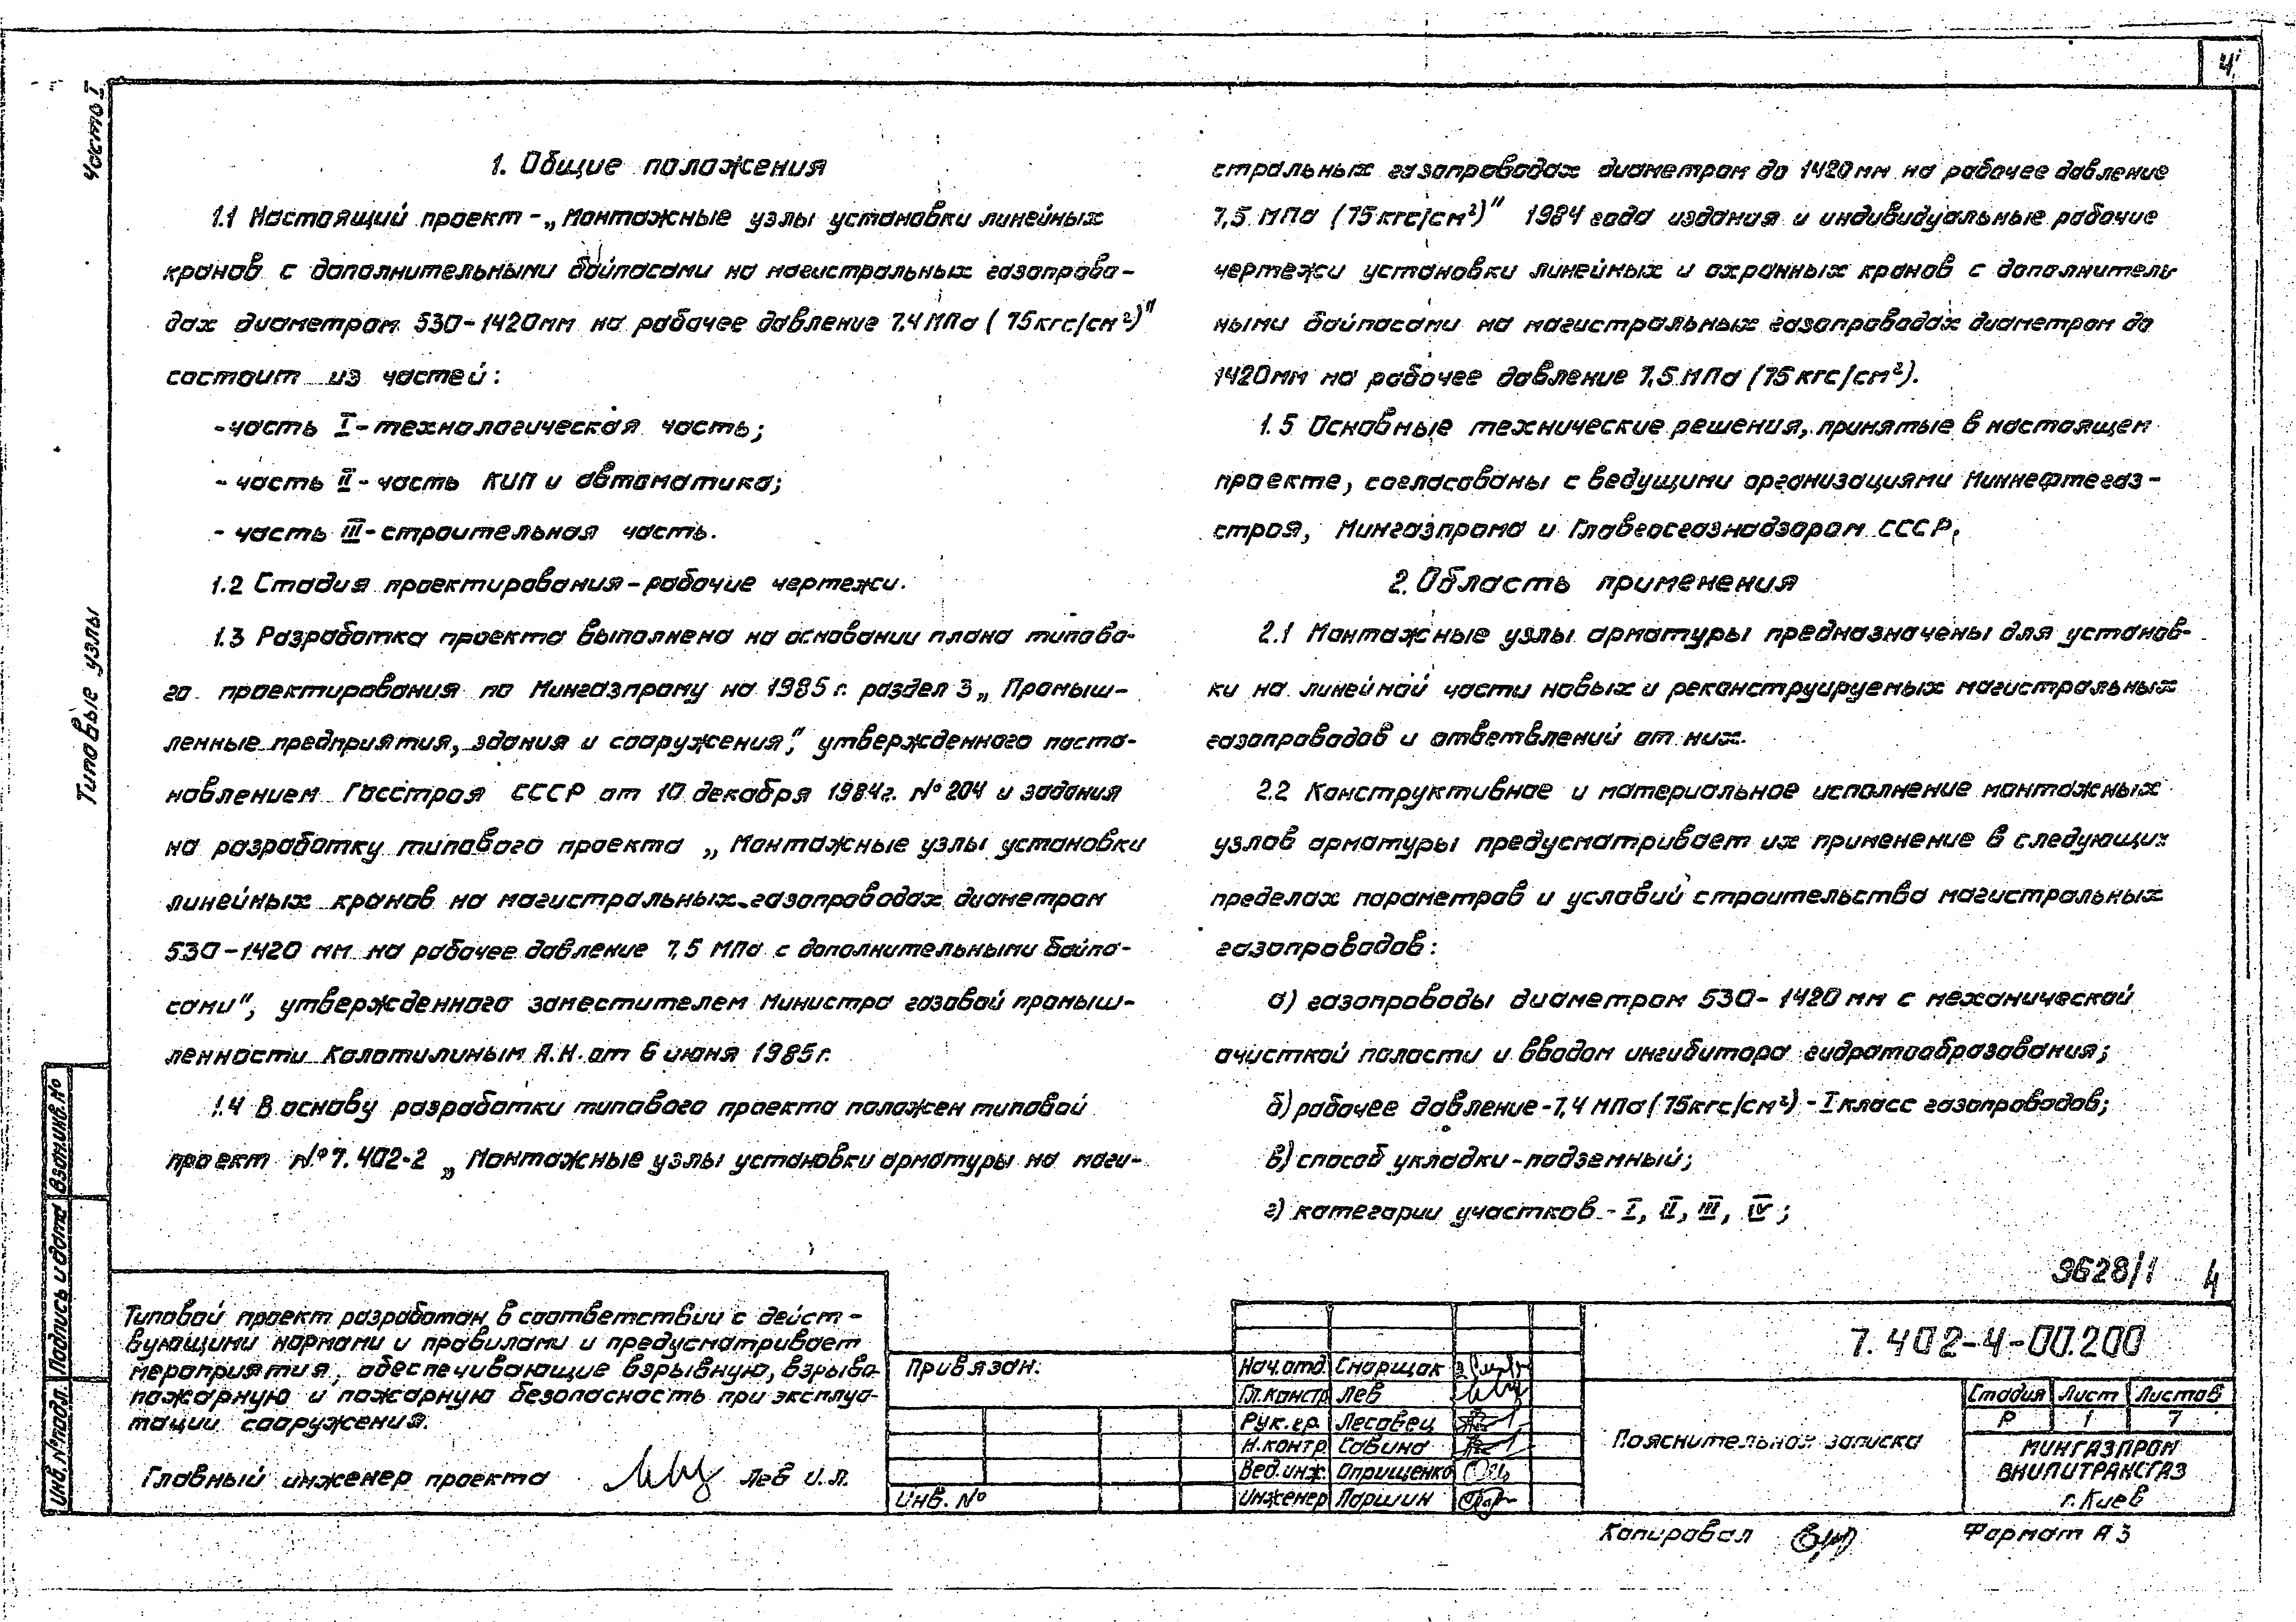 4
Часть I
Типовые узлы
1. Общие положения
1.1 Настоящий проект - „Монтажные узлы установки линейных
кранов с дополнительными байпасами на магистральных газопрово-
дах диаметром 530-1420мм на рабочее давление 7.4 МПа (75кгс/см²)"
состоит из частей:
- часть I - технологическая часть;
- часть II - часть КИП и автоматика;
- часть III - строительная часть.
1.2 Стадия проектирования - рабочие чертежи.
1.3 Разработка проекта выполнена на основании плана типово-
го проектирования по Мингазпрому на 1985 г. раздел 3 „Промыш-
ленные предприятия, здания и сооружения", утвержденного поста-
новлением Госстроя СССР от 10 декабря 1984г. № 204 и задания
на разработку типового проекта „Монтажные узлы установки
линейных кранов на магистральных газопроводах диаметром
530-1420 мм на рабочее давление 7,5 МПа с дополнительными байпа-
сами", утвержденного заместителем Министра газовой промыш-
ленности Колотилиным А.Н. от 6 июня 1985г.
1.4 В основу разработки типового проекта положен типовой
проект № 7.402-2 „Монтажные узлы установки арматуры на маги-
стральных газопроводах диаметром до 1420мм на рабочее давление
7,5 МПа (75кгс/см²)" 1984 года издания и индивидуальные рабочие
чертежи установки линейных и охранных кранов с дополнитель
ными байпасами на магистральных газопроводах диаметром до
1420мм на рабочее давление 7,5 МПа (75кгс/см²).
1.5 Основные технические решения, принятые в настоящем
проекте, согласованы с ведущими организациями Миннефтегаз-
строя, Мингазпрома и Главгосгазнадзором СССР.
2. Область применения
2.1 Монтажные узлы арматуры предназначены для установ-
ки на линейной части новых и реконструируемых магистральных
газопроводов и ответвлений от них.
2.2 Конструктивное и материальное исполнение монтажных
узлов арматуры предусматривает их применение в следующих
пределах параметров и условий строительства магистральных
газопроводов:
а) газопроводы диаметром 530-1420 мм с механической
очисткой полости и вводом ингибитора гидратообразования;
б) рабочее давление - 7,4 МПа (75кгс/см²) - I класс газопроводов;
в) способ укладки - подземный;
г) категории участков - I, II, III, IV;
9628/1 4
Типовой проект разработан в соответствии с дейст-
вующими нормами и правилами и предусматривает
мероприятия, обеспечивающие взрывную, взрыво-
пожарную и пожарную безопасность при эксплуа-
тации сооружения.
Главный инженер проекта Лев И.Л.
Привязан:
Инв. №
Нач.отд. Сморщак
Гл.констр Лев
Рук.гр. Лесовец
Н.контр. Савина
Вед.инж. Оприщенко
Инженер Паршин
7.402-4-00.200
Пояснительная записка
Стадия Лист Листов
Р 1 7
МИНГАЗПРОМ
ВНИПИТРАНСГАЗ
г. Киев
Копировал
Формат А3
Инв.№подл. Подпись и дата Взам.инв.№